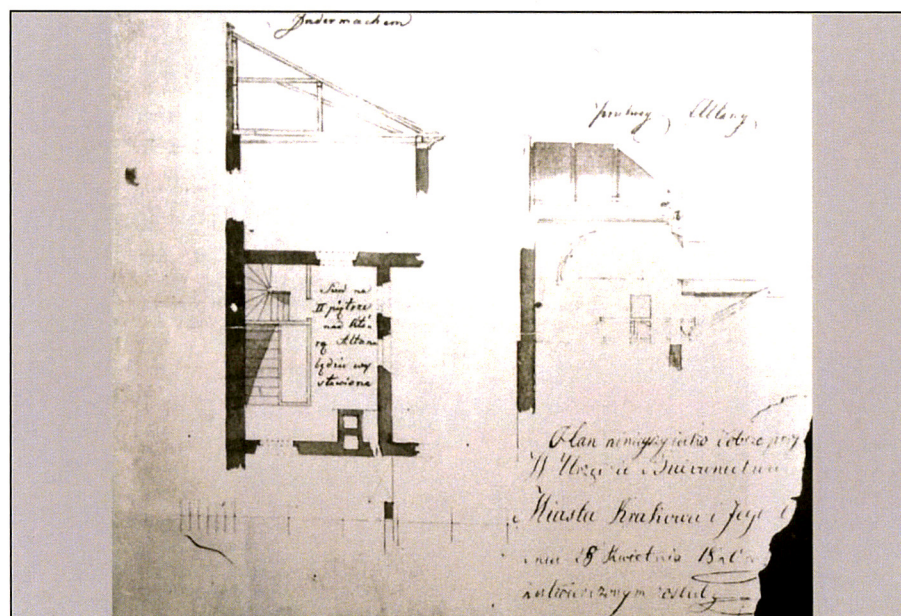 Indermachem
przekrój Altany
Sień na
II piętrze
nad któ-
rą Altana
będzie wy
stawiona
Plan niniejszy jako dobrze przy
W Urzędzie Budownictwa
Miasta Krakowa i Jego
dnia 28 Kwietnia
zatwierdzonym został